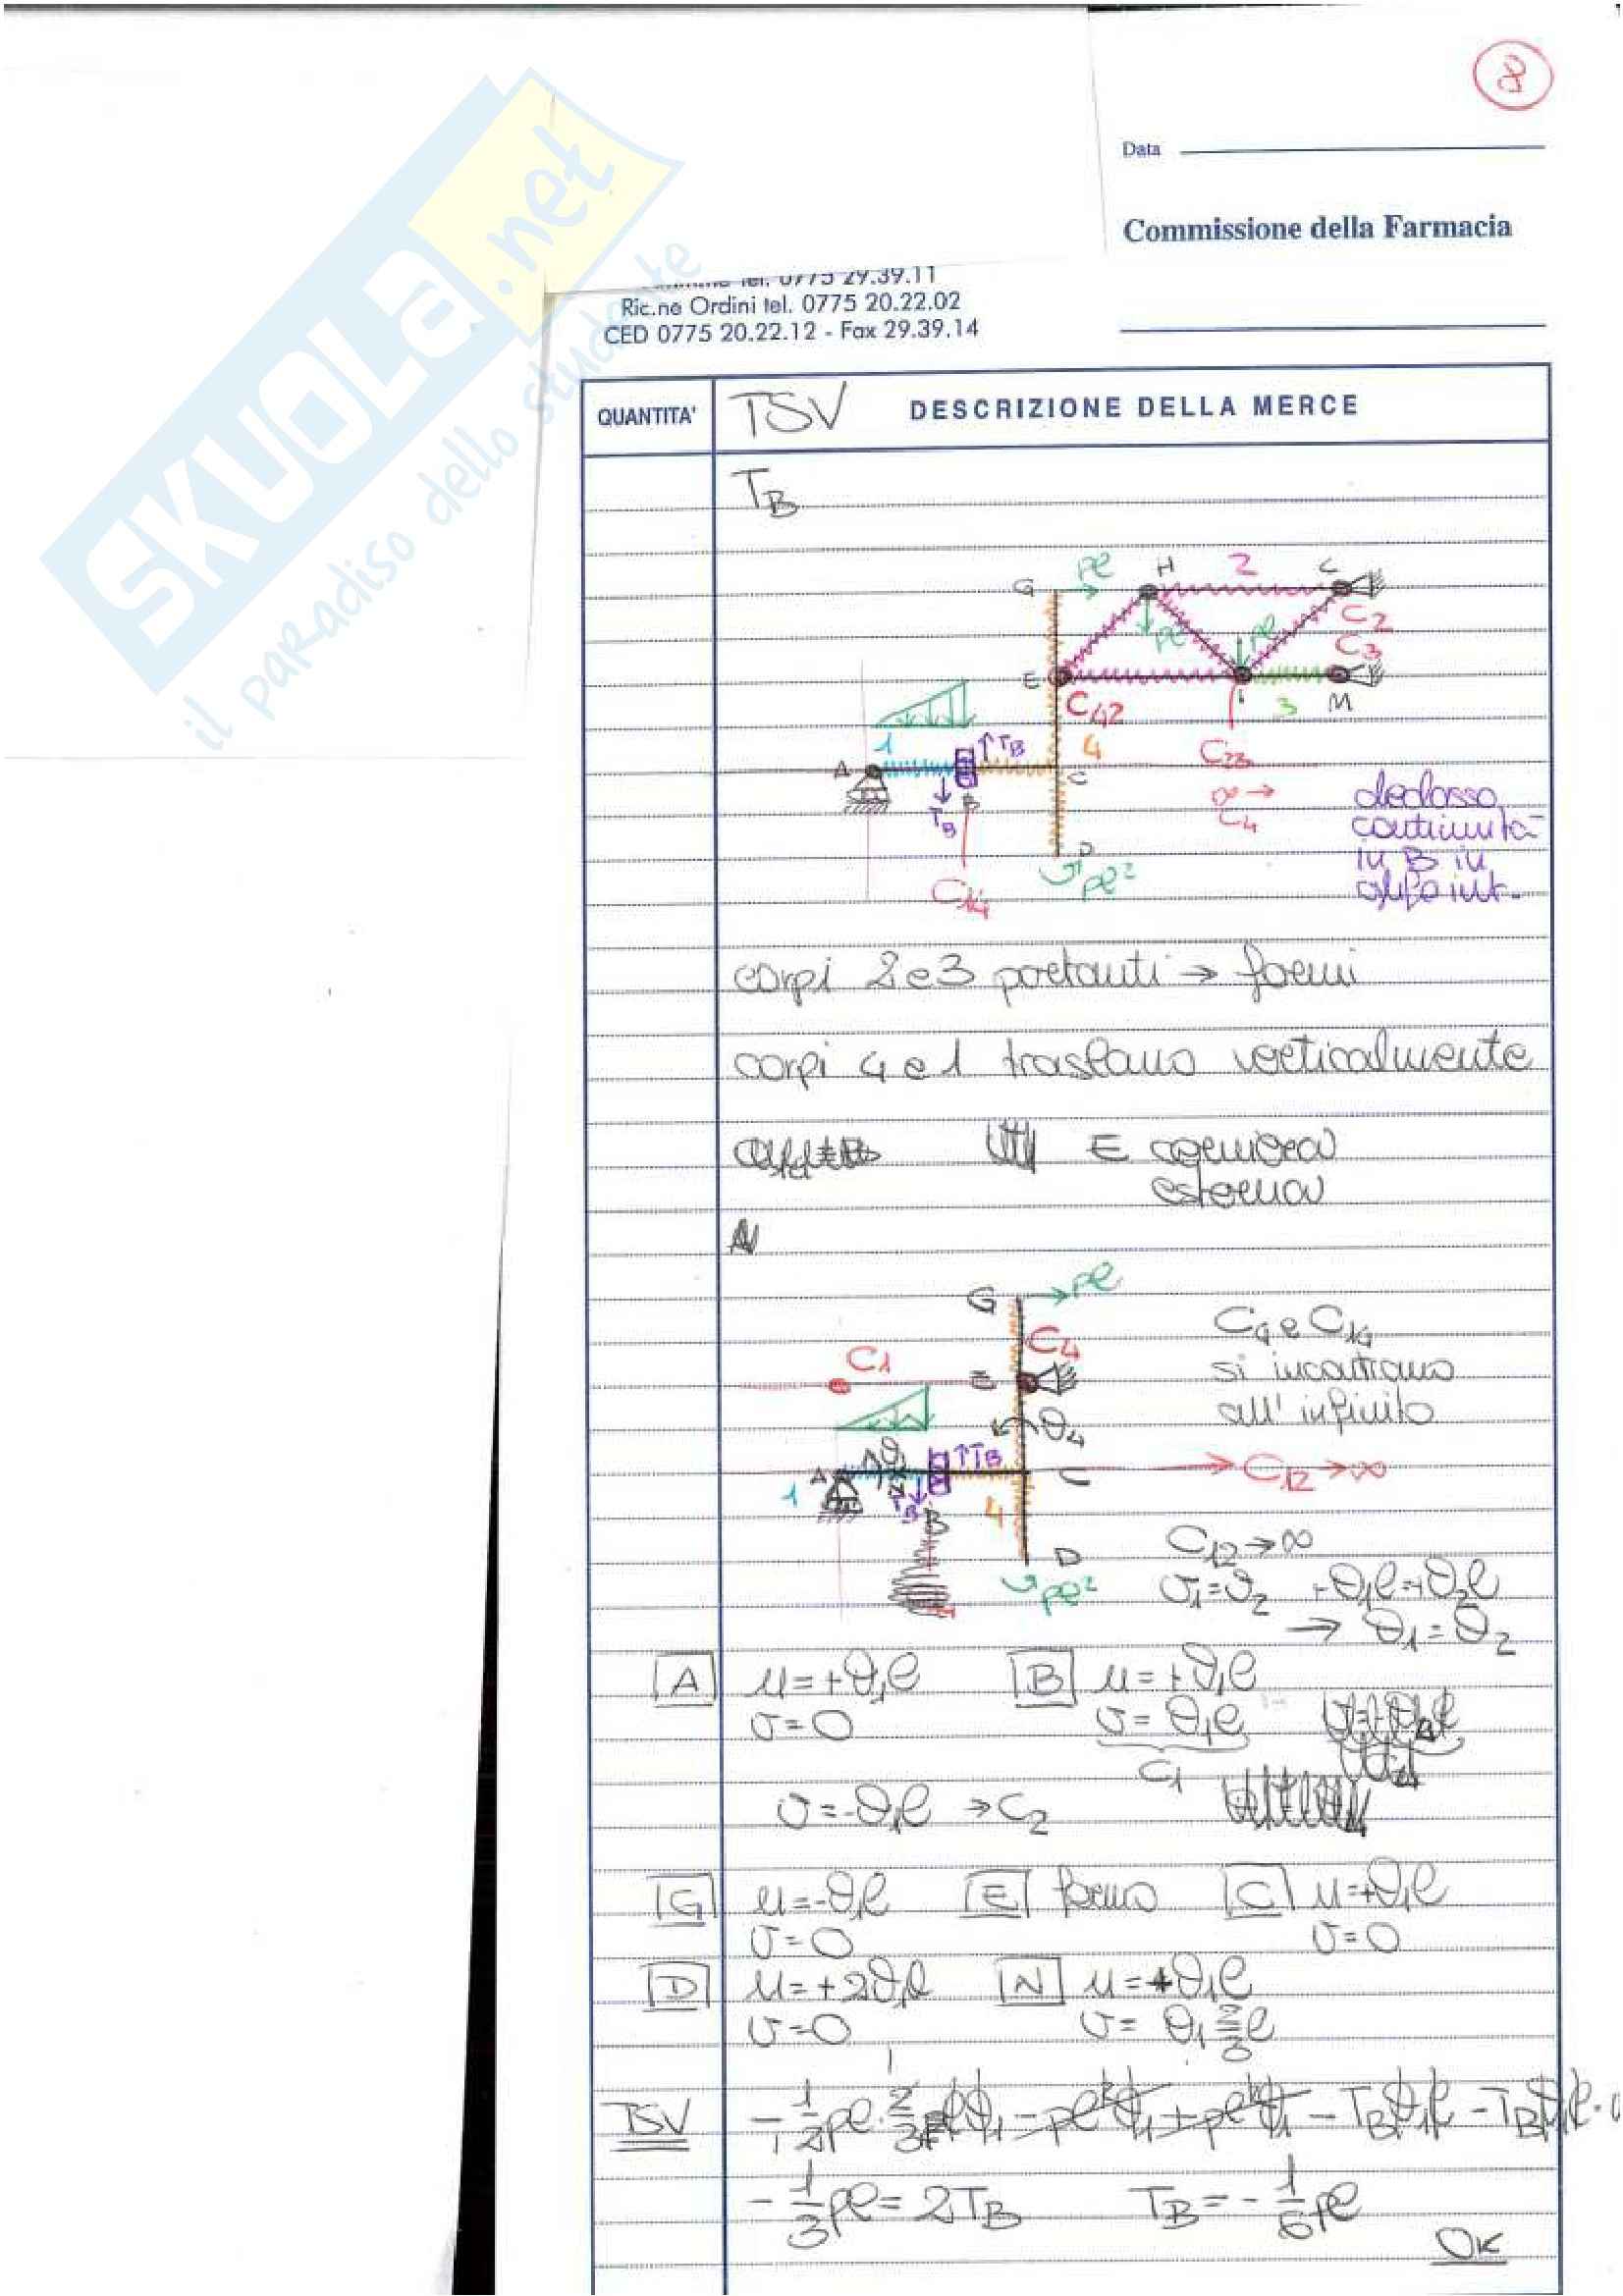 8
Data
Commissione della Farmacia
Ric.ne Ordini tel. 0775 20.22.02
CED 0775 20.22.12 - Fax 29.39.14
SKUOLA.net
il paradiso dello studente
QUANTITA'
TSV DESCRIZIONE DELLA MERCE
T_B
G pl H 2 L
C2
pl pl C3
E C42 3 M
1 T_B 4 C23
A C
T_B B ∞ → C4
D
C14 pl²
declasso
continuità
in B in
corpi 2 e 3 portanti → fermi
corpi 4 e 1 traslano verticalmente
E cerniera
esterna
G → pl
C4
C1
E
ϑ4
A T_B C → C12 → ∞
1 T_B 4
B
D
pl²
C4 e C14
si incontrano
all'infinito
C12 → ∞
v1 = v2 +ϑ1l = +ϑ2l
→ ϑ1 = ϑ2
A u = +ϑ1l B u = +ϑ1l
v = 0 v = ϑ1l
C1
v = -ϑ1l → C2
G u = -ϑ1l E fermo C u = +ϑ1l
v = 0 v = 0
D u = +2ϑ1l N u = +ϑ1l
v = 0 v = ϑ1 2/3 l
TSV - 1/2 pl · 2/3 lϑ1 - pl²ϑ1 + pl²ϑ1 - T_Bϑ1l - T_Bϑ1l
- 1/3 pl = 2T_B T_B = - 1/6 pl
OK